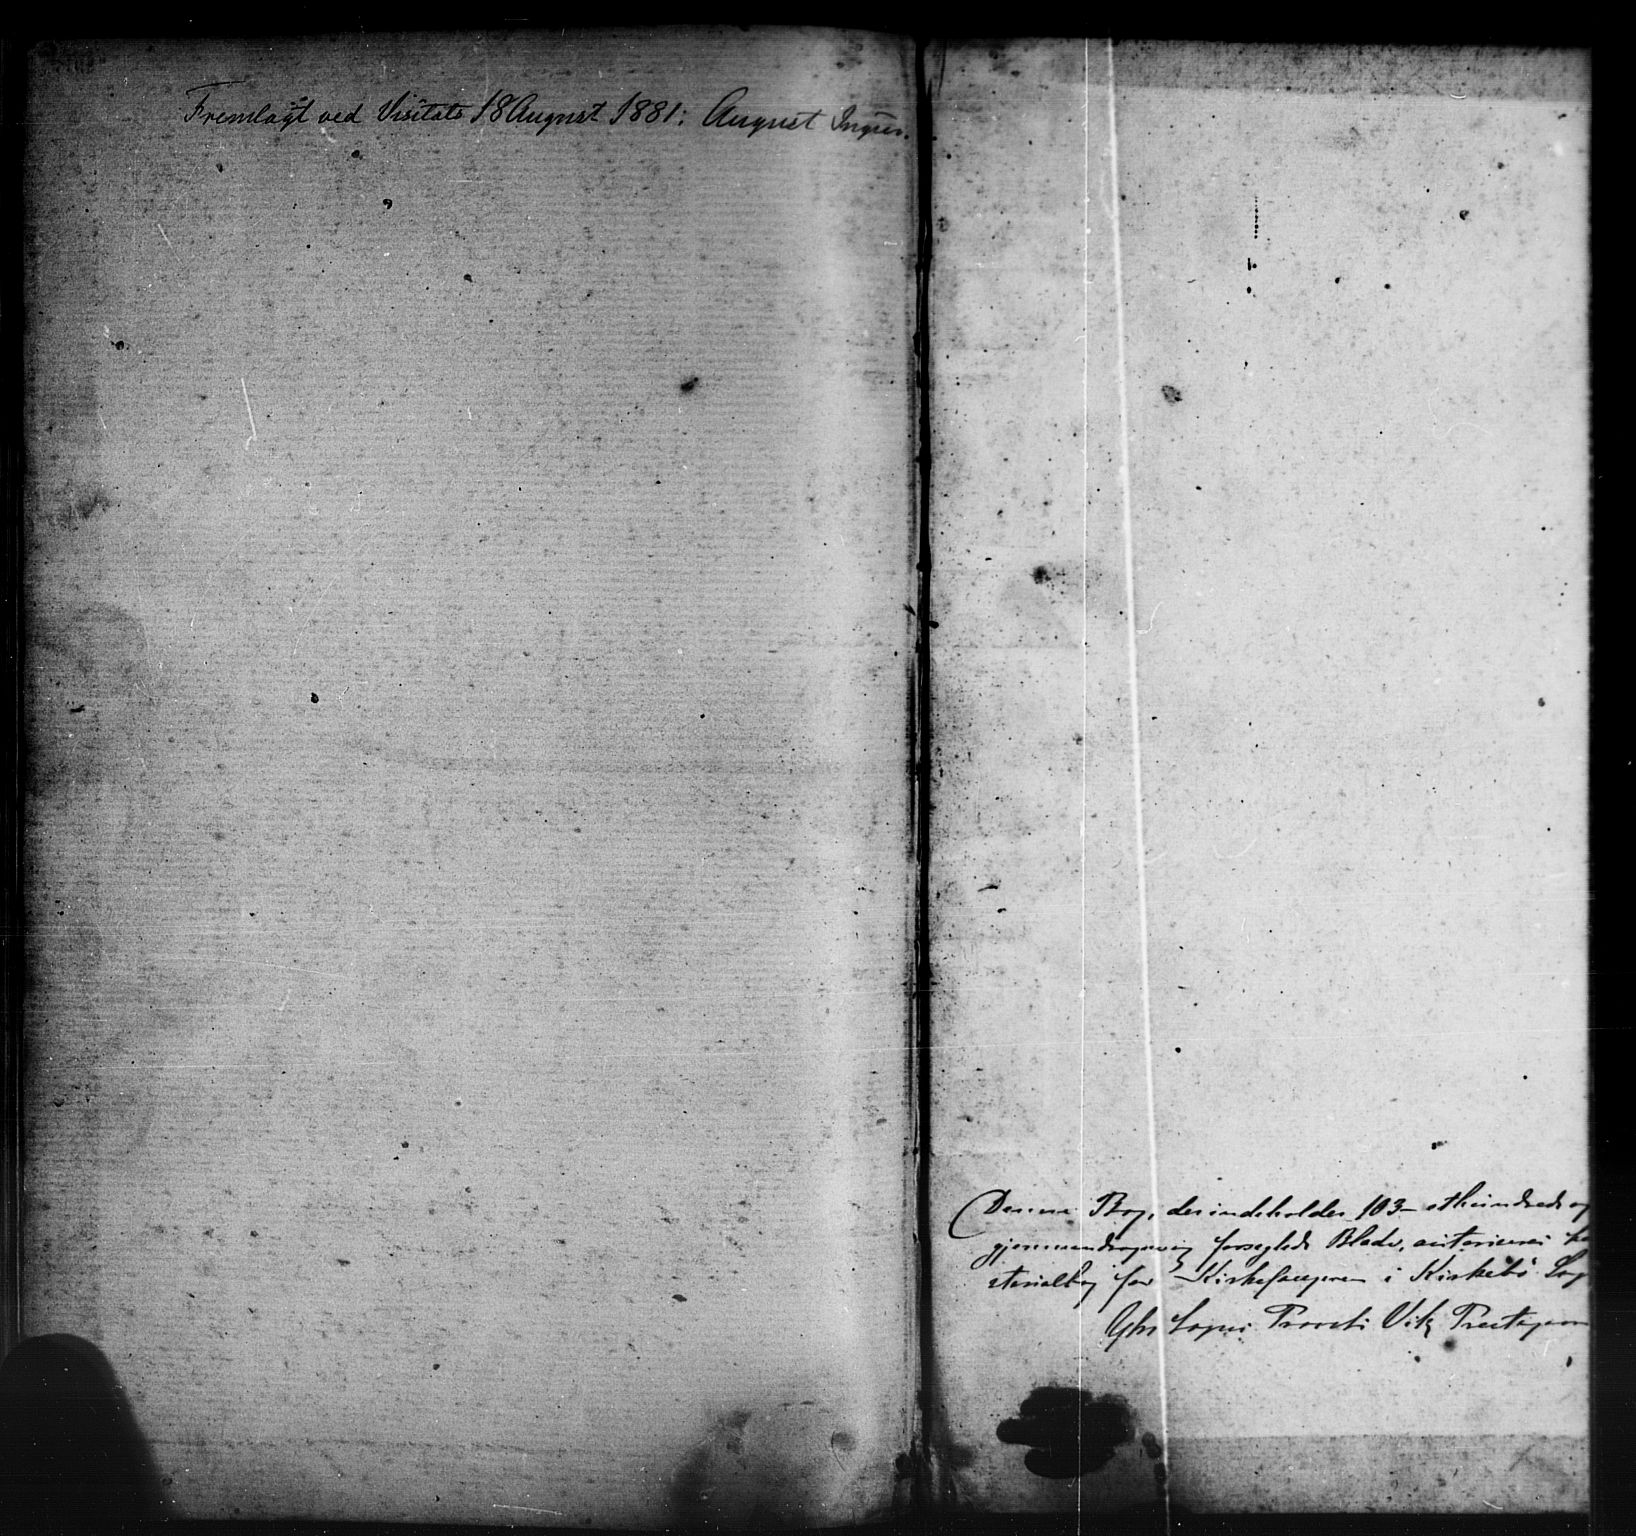 Fremlagt ved Visitats 18 August 1881: August
Denne Bog, der indeholder 103 - ethundrede og
gjennemdragne og forseglede Blade, autoriseres
sterialbog for Kirkesangeren i Kirkebø Sog
Ytre Sogns Provsti Vik Præstegj